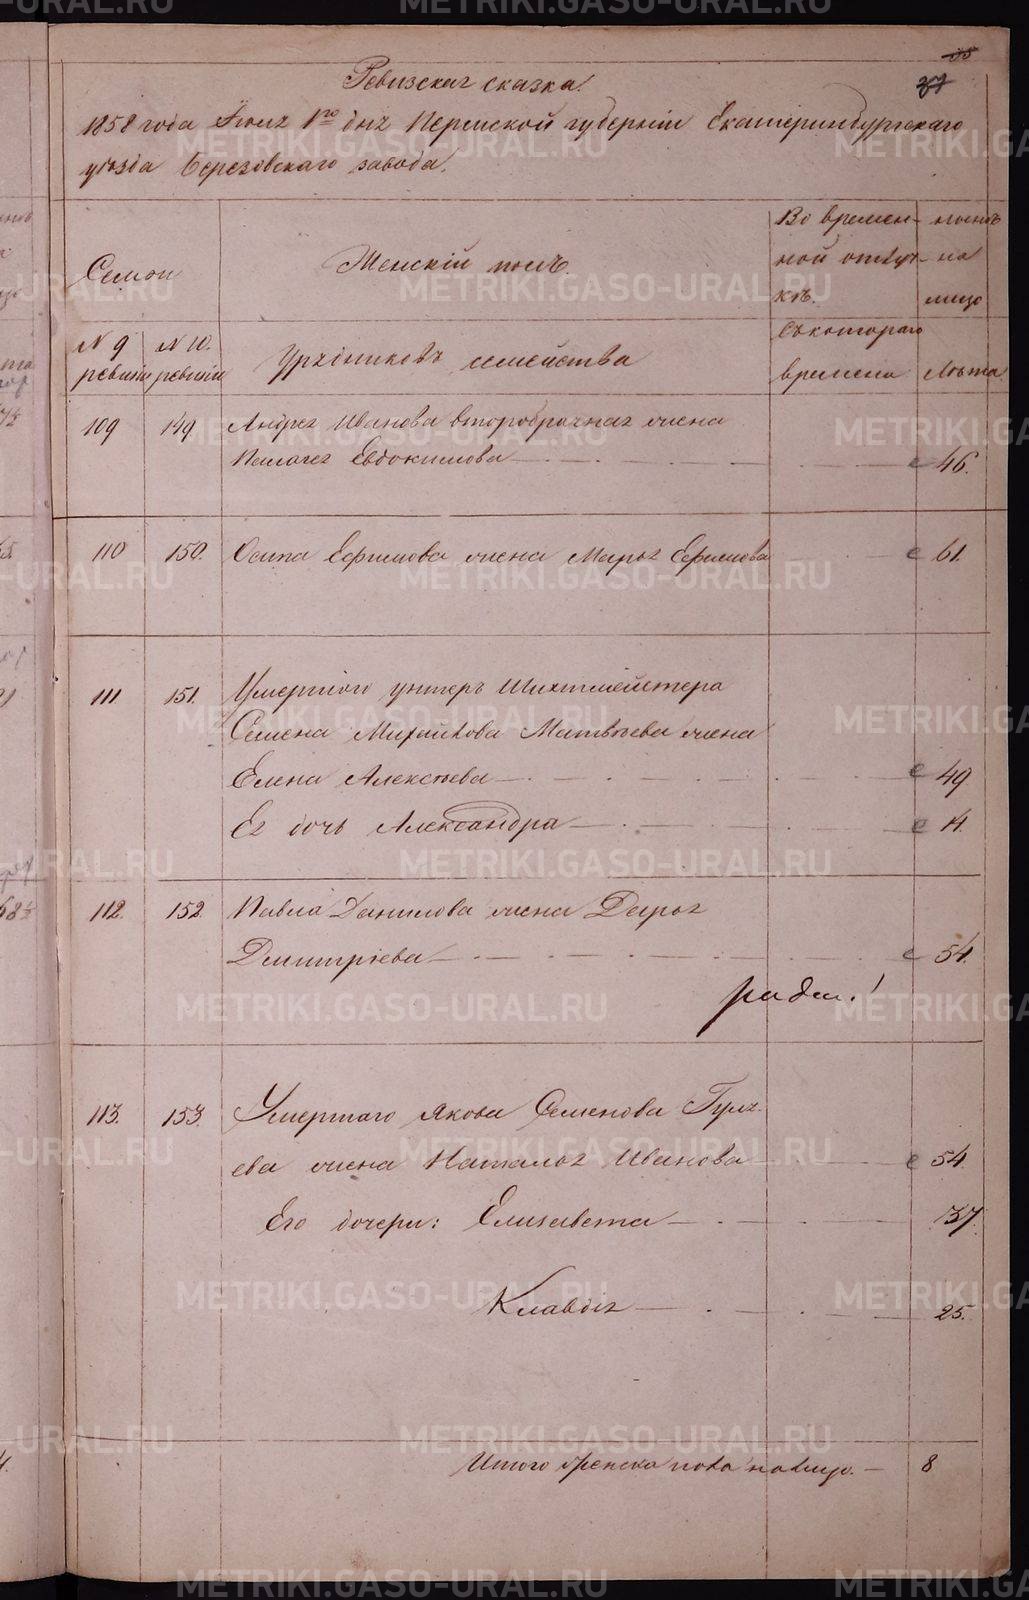 35
37
Ревизская сказка.
1858 года Июня 1го дня Пермской губернiи Екатеринбургскаго
уѣзда Березовскаго завода.
Семьи
Женскiй полъ.
Во времен-
ной отлуч-
кѣ.
нынѣ
на
лицо
N 9 ревизiи
N 10. ревизiи
Урядниковъ семейства
Съ котораго
времени
Лѣта.
109 149. Андрея Иванова второбрачная жена
Пелагея Евдокимова 46.
110 150. Осипа Ефимова жена Марья Ефимова 61.
111 151. Умершаго унтеръ Шихтмейстера
Семена Михайлова Матвѣева жена
Елена Алексѣева 49
Ея дочь Александра 14.
112. 152. Павла Данилова жена Дарья
Дмитрiева 54.
113. 153. Умершаго Якова Семенова Гуля-
ева жена Наталья Иванова 54.
Его дочери: Елизавета 37
Клавдiя 25.
Итого женска пола на лицо. 8
METRIKI.GASO-URAL.RU